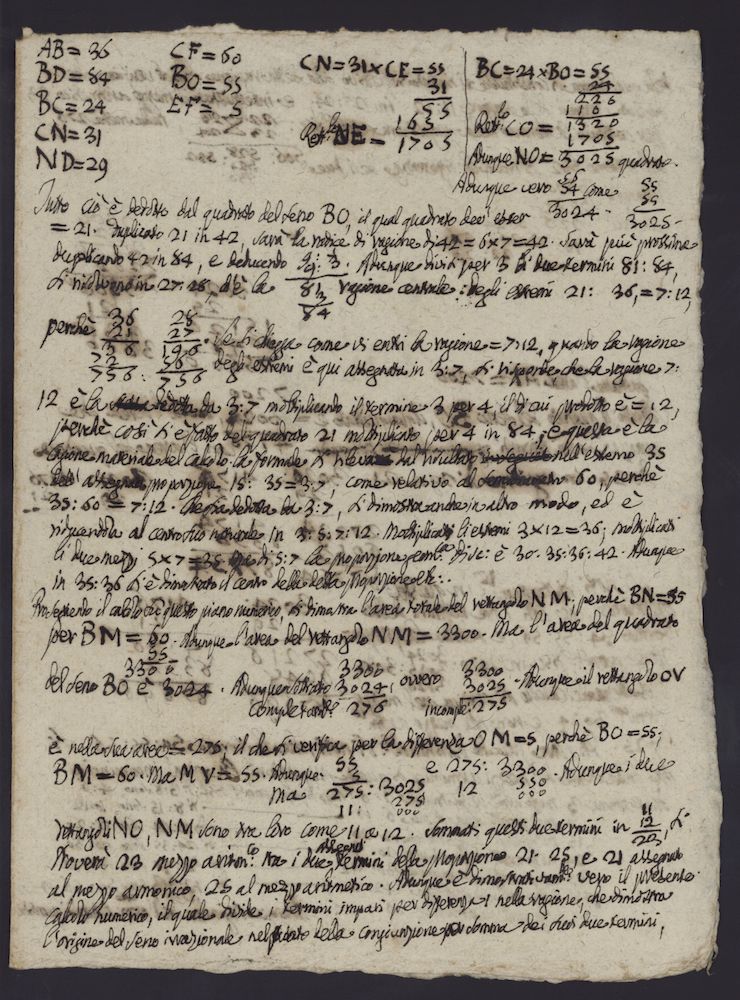 AB = 36 CF = 60 CN = 31 × CE = 55 BC = 24 × BO = 55
BD = 84 BO = 55 31 24
BC = 24 EF = 5 55 220
CN = 31 165 110
ND = 29 Rett.lo NE = 1705 Rett.lo CO = 1320
1705
Adunque NO = 3025 quadrato.
Adunque vero 55 come 55
54 55
3024 · 3025 ·
Tutto ciò è dedotto dal quadrato del seno BO, il qual quadrato dev'esser
= 21 · duplicato 21 in 42, sarà la radice di ragione di 42 = 6 × 7 = 42 · Sarà più prossima
duplicando 42 in 84, e deducendo Adunque divisi per 3 li due termini 81 : 84,
si riducono in 27 : 28, ed è la 81 ragione centrale degli estremi 21 : 36, = 7 : 12,
84
perchè 36 28 Se si chiegga come vi entri la ragione = 7 : 12, quando la ragione
21 27
36 196
72 56 degli estremi è qui assegnata in 3 : 7, si risponde, che la ragione 7 :
756 : 756
12 è la dedotta da 3 : 7 moltiplicando il termine 3 per 4, il di cui prodotto è = 12,
perchè così si è fatto del quadrato 21 moltiplicato per 4 in 84, e questa è la
ragione materiale del calcolo. La formale si rileva dal risultato nell'estremo 35
dell'assegnata proporzione 15 : 35 = 3 : 7, come relativo al 60, perchè
35 : 60 = 7 : 12 · Che sia dedotta da 3 : 7, si dimostra anche in altro modo, ed è
riducendola al centro suo naturale in 3 : 5 : 7 : 12 · Moltiplicati li estremi 3 × 12 = 36; moltiplicati
li due mezzi 5 × 7 = 35 di 5 : 7 la proporzione è 30 : 35 : 36 : 42 · Adunque
in 35 : 36 si è dimostrato il centro della detta proporzione etc.
Proseguendo il calcolo su questo piano numerico, si dimostra l'area totale del rettangolo NM; perchè BN = 55
per BM = 60 · Adunque l'area del rettangolo NM = 3300 · Ma l'area del quadrato
55
3300
del seno BO è 3024 · Adunque sottratto 3300 ; ovvero 3300 · Adunque il rettangolo OV
3024 3025
276 incomple: 275
è nella sua area = 275, il che si verifica per la differenza OM = 5, perchè BO = 55;
BM = 60 · Ma MV = 55 · Adunque 55 e 275 : 3300 · Adunque i due
5 12 550
Ma 275 : 3025 000
11 : 275
000
rettangoli NO, NM sono tra loro come 11 a 12 · Sommati questi due termini in 11 , si
12
23
troverà 23 mezzo aritm.co tra i due assegnati termini della proporzione 21 · 25, e 21 assegnato
al mezzo armonico, 25 al mezzo aritmetico · Adunque è vero il presente
calcolo numerico, il quale divide i termini impari per differenza 1 nella ragione, che dimostra
l'origine del seno irrazionale nel della congiunzione per somma dei suoi due termini,